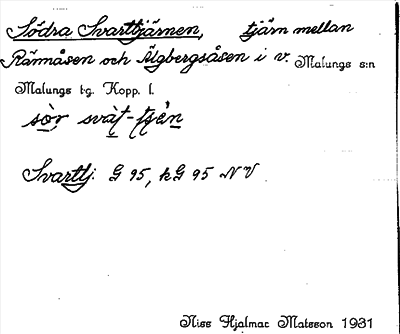 Södra Svarttjärnen, tjärn mellan
Rännåsen och Älgbergsåsen i v. Malungs s:n
Malungs t-g. Kopp. l.
Svarttj. G 95, kG 95 NV
Niss Hjalmar Matsson 1931